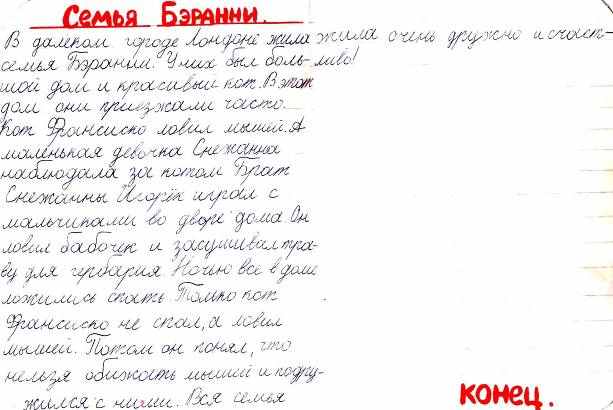 Семья Бэранни.
В далеком городе Лондоне жила жила очень дружно и счаст-
семья Бэранни. У них был боль- ливо!
шой дом и красивый кот. В этот
дом они приезжали часто.
Кот Франсиско ловил мышей. А
маленькая девочка Снежанна
наблюдала за котом. Брат
Снежанны Игорёк играл с
мальчиками во дворе дома. Он
ловил бабочек и засушивал тра-
ву для гербария. Ночью все в доме
ложились спать. Только кот
Франсиско не спал, а ловил
мышей. Потом он понял, что
нельзя обижать мышей и подру-
жился с ними. Вся семья
конец.